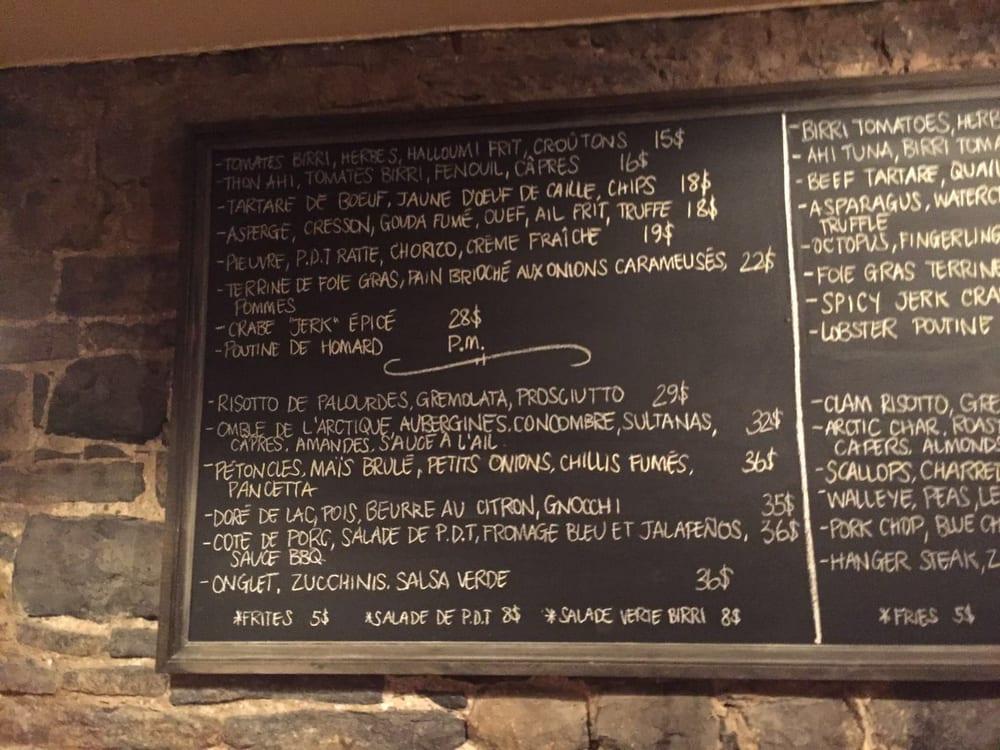 -TOMATES BIRRI, HERBES, HALLOUMI FRIT, CROÛTONS 15$
-THON AHI, TOMATES BIRRI, FENOUIL, CÂPRES 16$
-TARTARE DE BOEUF, JAUNE D'OEUF DE CAILLE, CHIPS 18$
-ASPERGE, CRESSON, GOUDA FUMÉ, OUEF, AIL FRIT, TRUFFE 18$
-PIEUVRE, P.D.T RATTE, CHORIZO, CRÈME FRAÎCHE 19$
-TERRINE DE FOIE GRAS, PAIN BRIOCHÉ AUX ONIONS CARAMEUSÉS, 22$
POMMES
-CRABE "JERK" ÉPICÉ 28$
-POUTINE DE HOMARD P.M.
-RISOTTO DE PALOURDES, GREMOLATA, PROSCIUTTO 29$
-OMBLE DE L'ARCTIQUE, AUBERGINES, CONCOMBRE, SULTANAS, 32$
CÂPRES, AMANDES, SAUCE À L'AIL
-PÉTONCLES, MAÏS BRULÉ, PETITS ONIONS, CHILLIS FUMÉS, 36$
PANCETTA
-DORÉ DE LAC, POIS, BEURRE AU CITRON, GNOCCHI 35$
-COTE DE PORC, SALADE DE P.D.T, FROMAGE BLEU ET JALAPEÑOS, 36$
SAUCE BBQ
-ONGLET, ZUCCHINIS, SALSA VERDE 36$
*FRITES 5$ *SALADE DE P.D.T 8$ *SALADE VERTE BIRRI 8$
-BIRRI TOMATOES, HERB
-AHI TUNA, BIRRI TOMA
-BEEF TARTARE, QUAIL
-ASPARAGUS, WATERC
TRUFFLE
-OCTOPUS, FINGERLING
-FOIE GRAS TERRINE
-SPICY JERK CRA
-LOBSTER POUTINE
-CLAM RISOTTO, GRE
-ARCTIC CHAR, ROAS
CAPERS, ALMONDS
-SCALLOPS, CHARRE
-WALLEYE, PEAS, LE
-PORK CHOP, BLUE CH
-HANGER STEAK, Z
*FRIES 5$